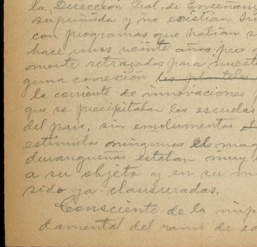 la Dirección Gral. de Enseñan
suprimida y no existían si
con programas que habían s
hace unos veinte años, pero q
mente retrazados para nuest
guna conexión los planteles
la corriente de innovaciones
que se precipitaban las escuelas
del país, sin emolumentos
estímulos ningunos el mag
duranguenas estaban muy l
a su objeto y en su m
sido ya clausuradas.
Consciente de la imp
damental del ramo de ed